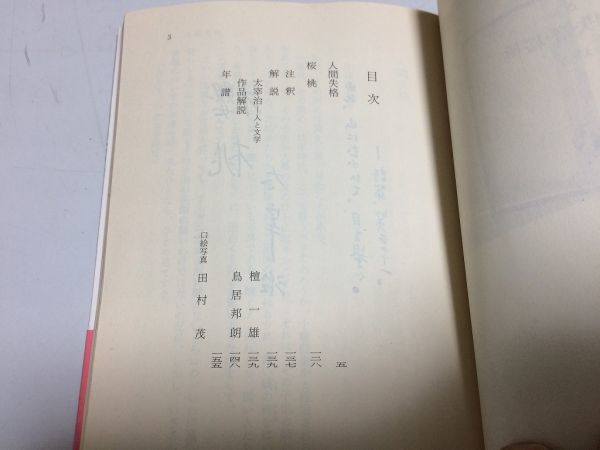 3
目次
人間失格 五
桜桃 一二八
注釈 一三七
解説 一三九
太宰治―人と文学 檀一雄 一三九
作品解説 鳥居邦朗 一四八
年譜 一五五
口絵写真 田村茂